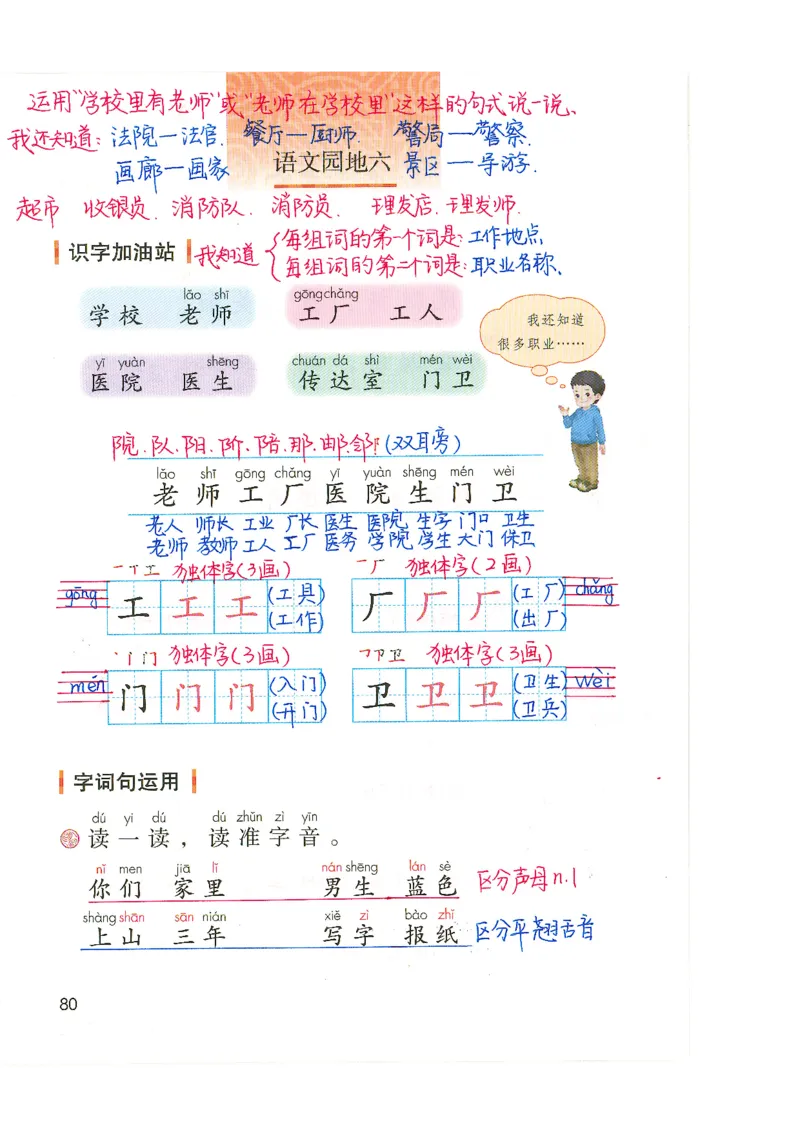 运用“学校里有老师”或“老师在学校里”这样的句式说一说、
我还知道：法院—法官. 餐厅—厨师. 警局—警察.
画廊—画家 语文园地六 景区—导游.
超市 收银员. 消防队. 消防员. 理发店. 理发师.
识字加油站 我知道 每组词的第一个词是：工作地点
每组词的第二个词是：职业名称、
lǎo shī gōng chǎng
学校 老师 工厂 工人
我还知道
很多职业……
yī yuàn shēng chuán dá shì mén wèi
医院 医生 传达室 门卫
院.队.阳.阶.陪.那.邮.邻 (双耳旁)
lǎo shī gōng chǎng yī yuàn shēng mén wèi
老 师 工 厂 医 院 生 门 卫
老人 师长 工业 厂长 医生 医院 生字 门口 卫生
老师 教师 工人 工厂 医务 学院 学生 大门 保卫
一丅工 独体字(3画) 一厂 独体字(2画)
gōng 工 工 工 (工具) 厂 厂 厂 (工厂) chǎng
(工作) (出厂)
丶丨门 独体字(3画) 𠃌卩卫 独体字(3画)
mén 门 门 门 (入门) 卫 卫 卫 (卫生) wèi
(开门) (卫兵)
字词句运用
dú yi dú dú zhǔn zì yīn
读一读，读准字音。
nǐ men jiā lǐ nán shēng lán sè
你们 家里 男生 蓝色 区分声母n.l
shàng shān sān nián xiě zì bào zhǐ
上山 三年 写字 报纸 区分平翘舌音
80